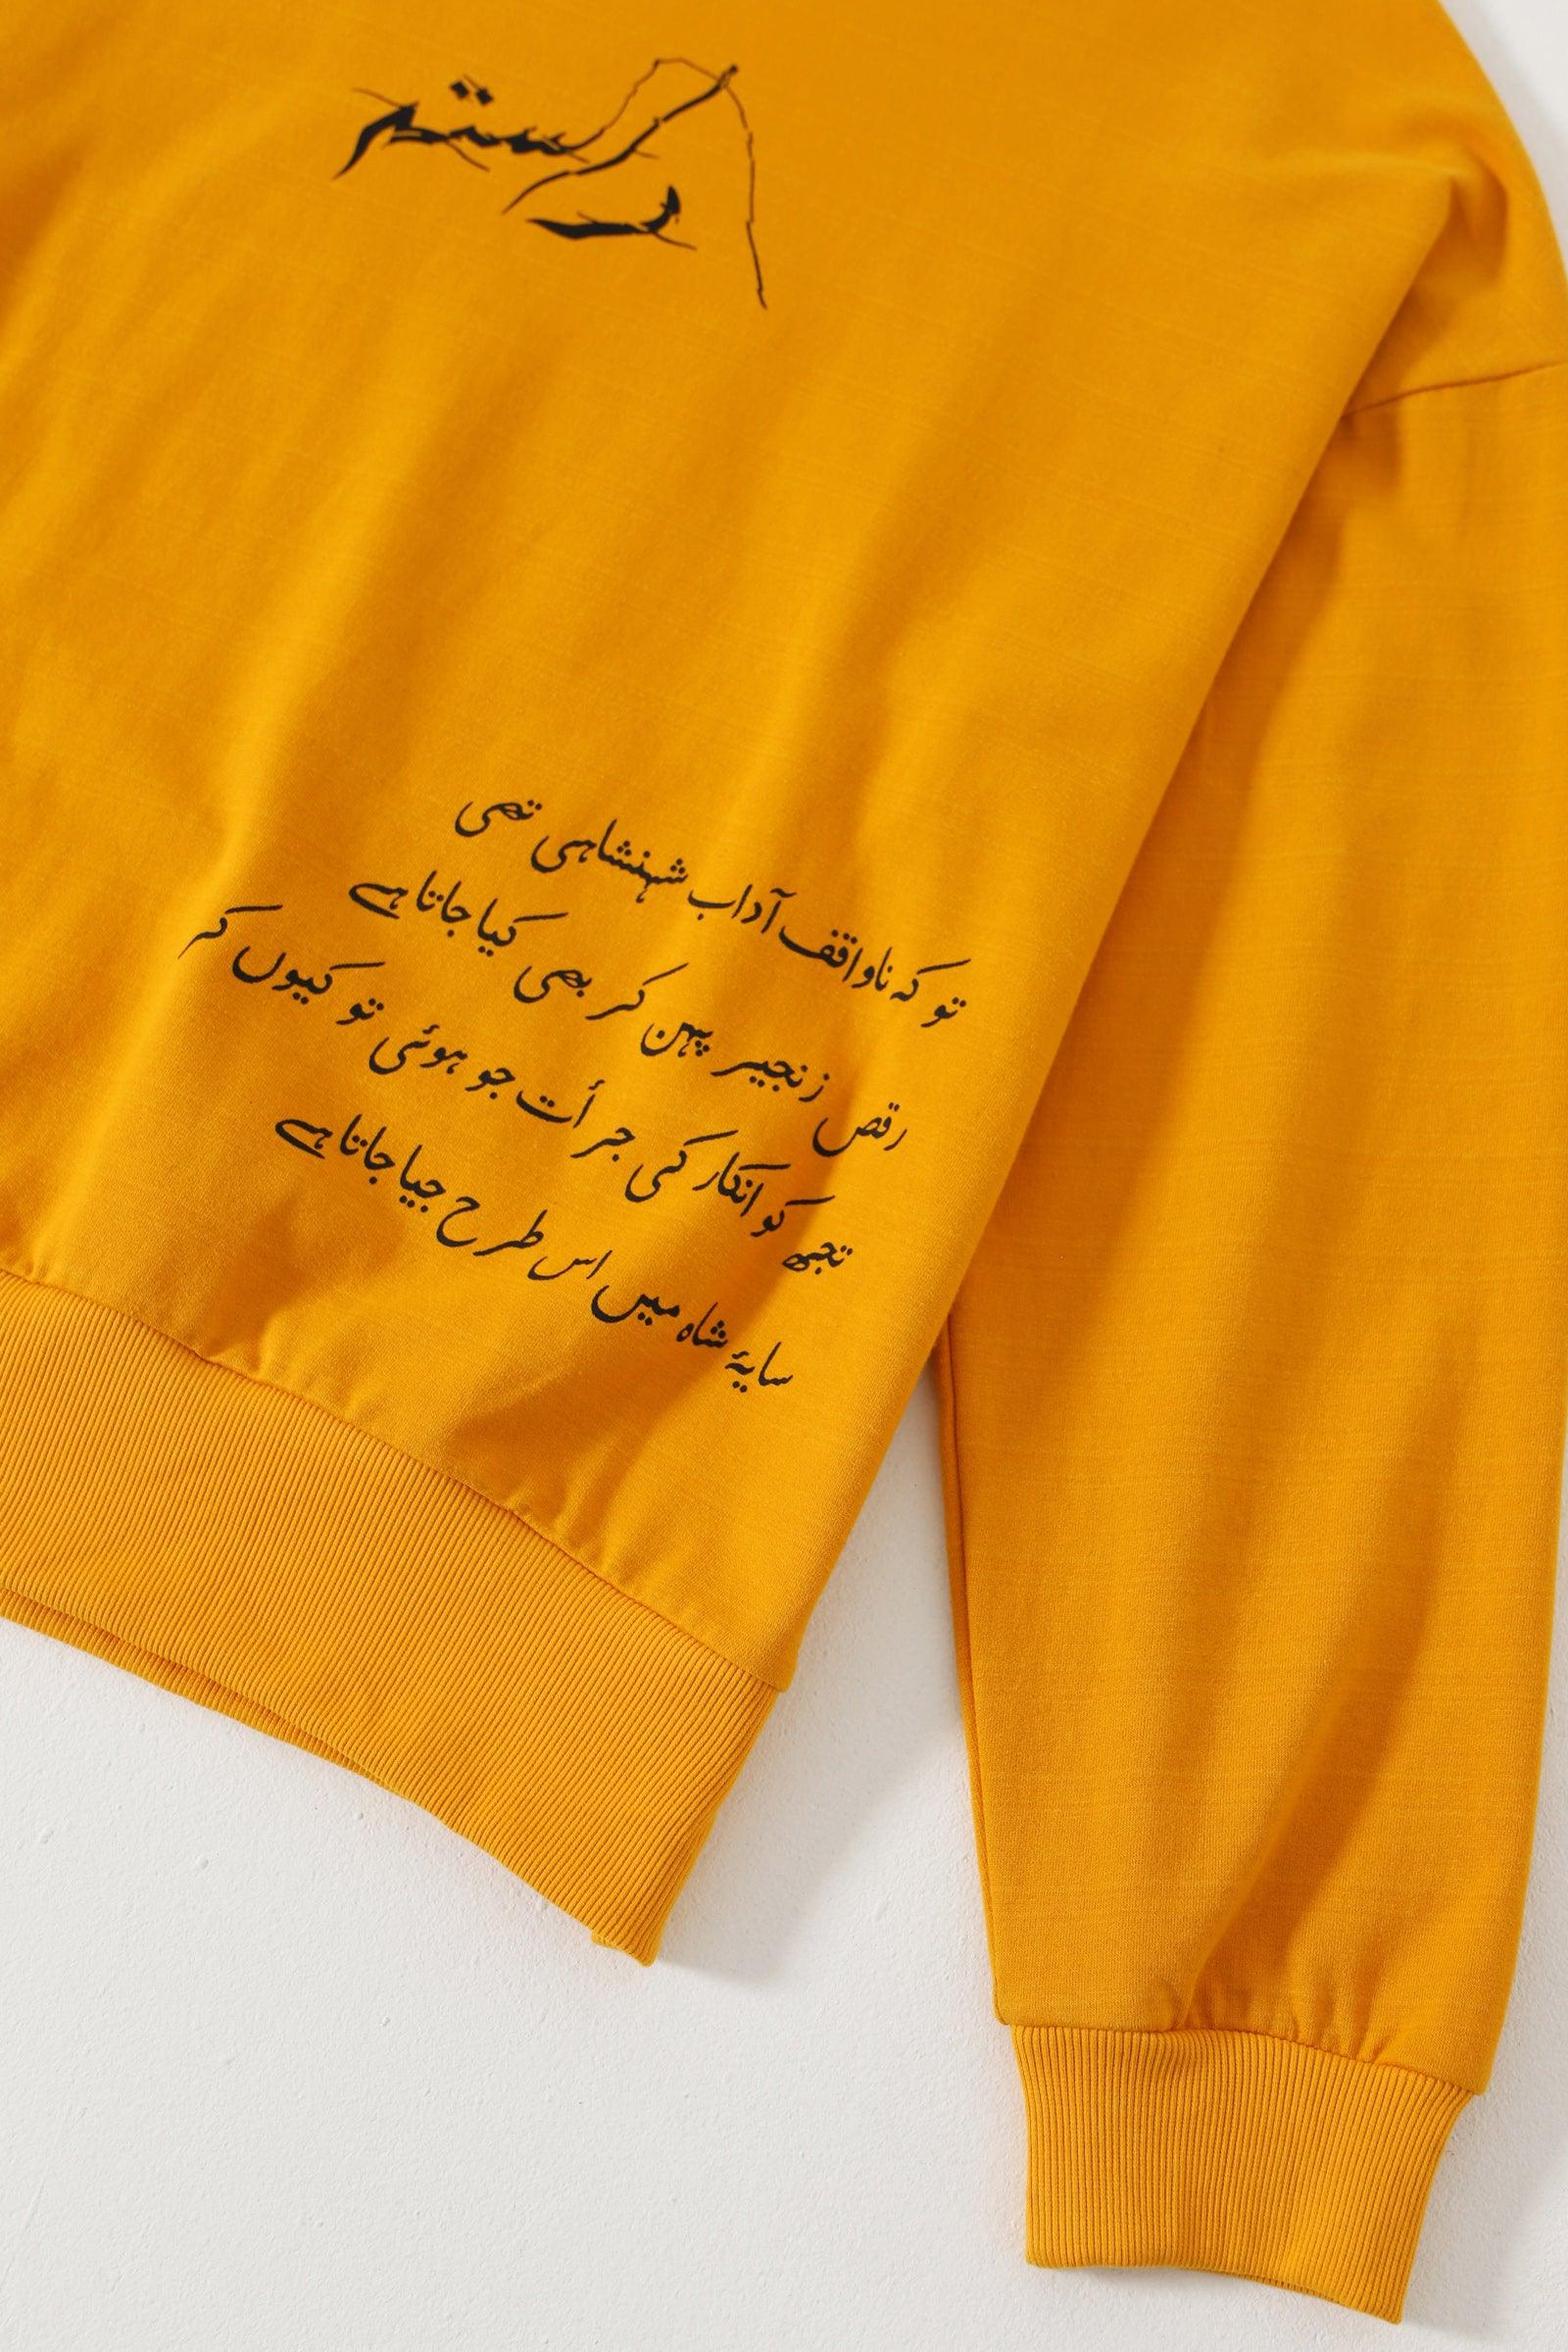 تو کہ ناواقف آداب شہنشاہی تھی
رقص زنجیر پہن کر بھی کیا جاتا ہے
تجھ کو انکار کی جرأت جو ہوئی تو کیوں کر
سایۂ شاہ میں اس طرح جیا جاتا ہے